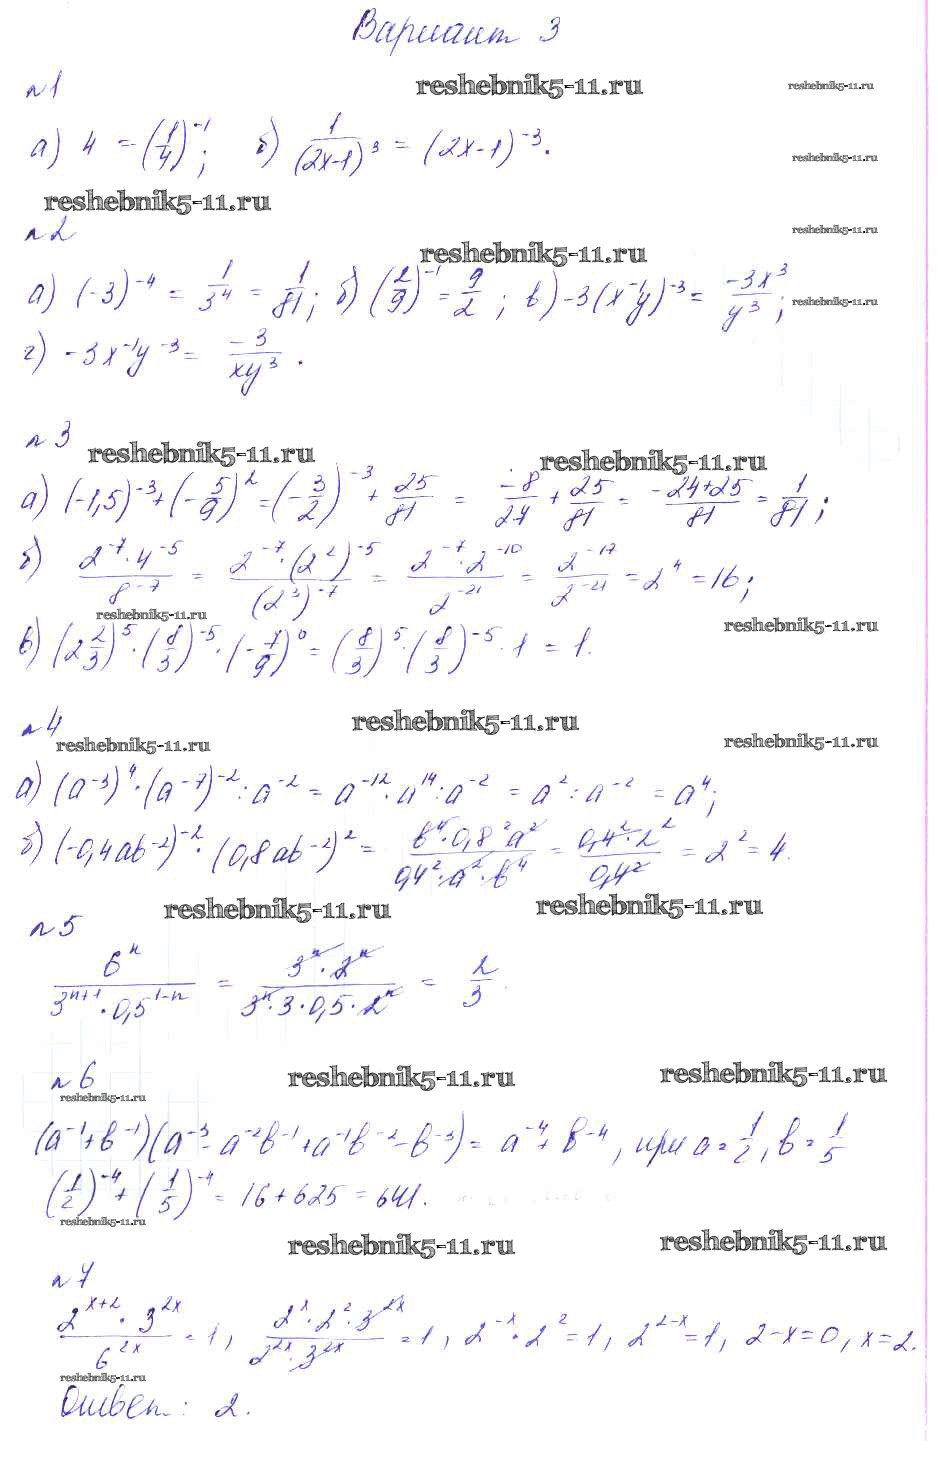 Вариант 3
reshebnik5-11.ru reshebnik5-11.ru
n1
а) 4 = (1/4)^-1; б) 1/(2x-1)^3 = (2x-1)^-3.
reshebnik5-11.ru
reshebnik5-11.ru
n2
reshebnik5-11.ru
reshebnik5-11.ru
а) (-3)^-4 = 1/3^4 = 1/81; б) (2/9)^-1 = 9/2; в) -3(x^-1y)^-3 = -3x^3/y^3;
reshebnik5-11.ru
г) -3x^-1y^-3 = -3/xy^3.
n3
reshebnik5-11.ru reshebnik5-11.ru
а) (-1,5)^-3 + (-5/9)^2 = (-3/2)^-3 + 25/81 = -8/27 + 25/81 = -24+25/81 = 1/81;
б) 2^-7 · 4^-5/8^-7 = 2^-7 · (2^2)^-5/(2^3)^-7 = 2^-7 · 2^-10/2^-21 = 2^-17/2^-21 = 2^4 = 16;
reshebnik5-11.ru reshebnik5-11.ru
в) (2 2/3)^5 · (8/3)^-5 · (-7/9)^0 = (8/3)^5 · (8/3)^-5 · 1 = 1.
n4
reshebnik5-11.ru
reshebnik5-11.ru reshebnik5-11.ru
а) (a^-3)^4 · (a^-7)^-2 : a^-2 = a^-12 · a^14 : a^-2 = a^2 : a^-2 = a^4;
б) (-0,4ab^-2)^-2 · (0,8ab^-2)^2 = b^4 · 0,8^2a^2/0,4^2 · a^2 · b^4 = 0,4^2 · 2^2/0,4^2 = 2^2 = 4.
reshebnik5-11.ru reshebnik5-11.ru
n5
6^n/3^n+1 · 0,5^1-n = 3^n · 2^n/3^n · 3 · 0,5 · 2^n = 2/3.
n6
reshebnik5-11.ru reshebnik5-11.ru
reshebnik5-11.ru
(a^-1+b^-1)(a^-3 - a^-2b^-1 + a^-1b^-2 - b^-3) = a^-4 + b^-4, при a = 1/2, b = 1/5
(1/2)^-4 + (1/5)^-4 = 16 + 625 = 641.
reshebnik5-11.ru
reshebnik5-11.ru reshebnik5-11.ru
n7
2^x+2 · 3^2x/6^2x = 1, 2^x · 2^2 · 3^2x/2^2x · 3^2x = 1, 2^-x · 2^2 = 1, 2^2-x = 1, 2-x=0, x=2.
reshebnik5-11.ru
Ответ: 2.